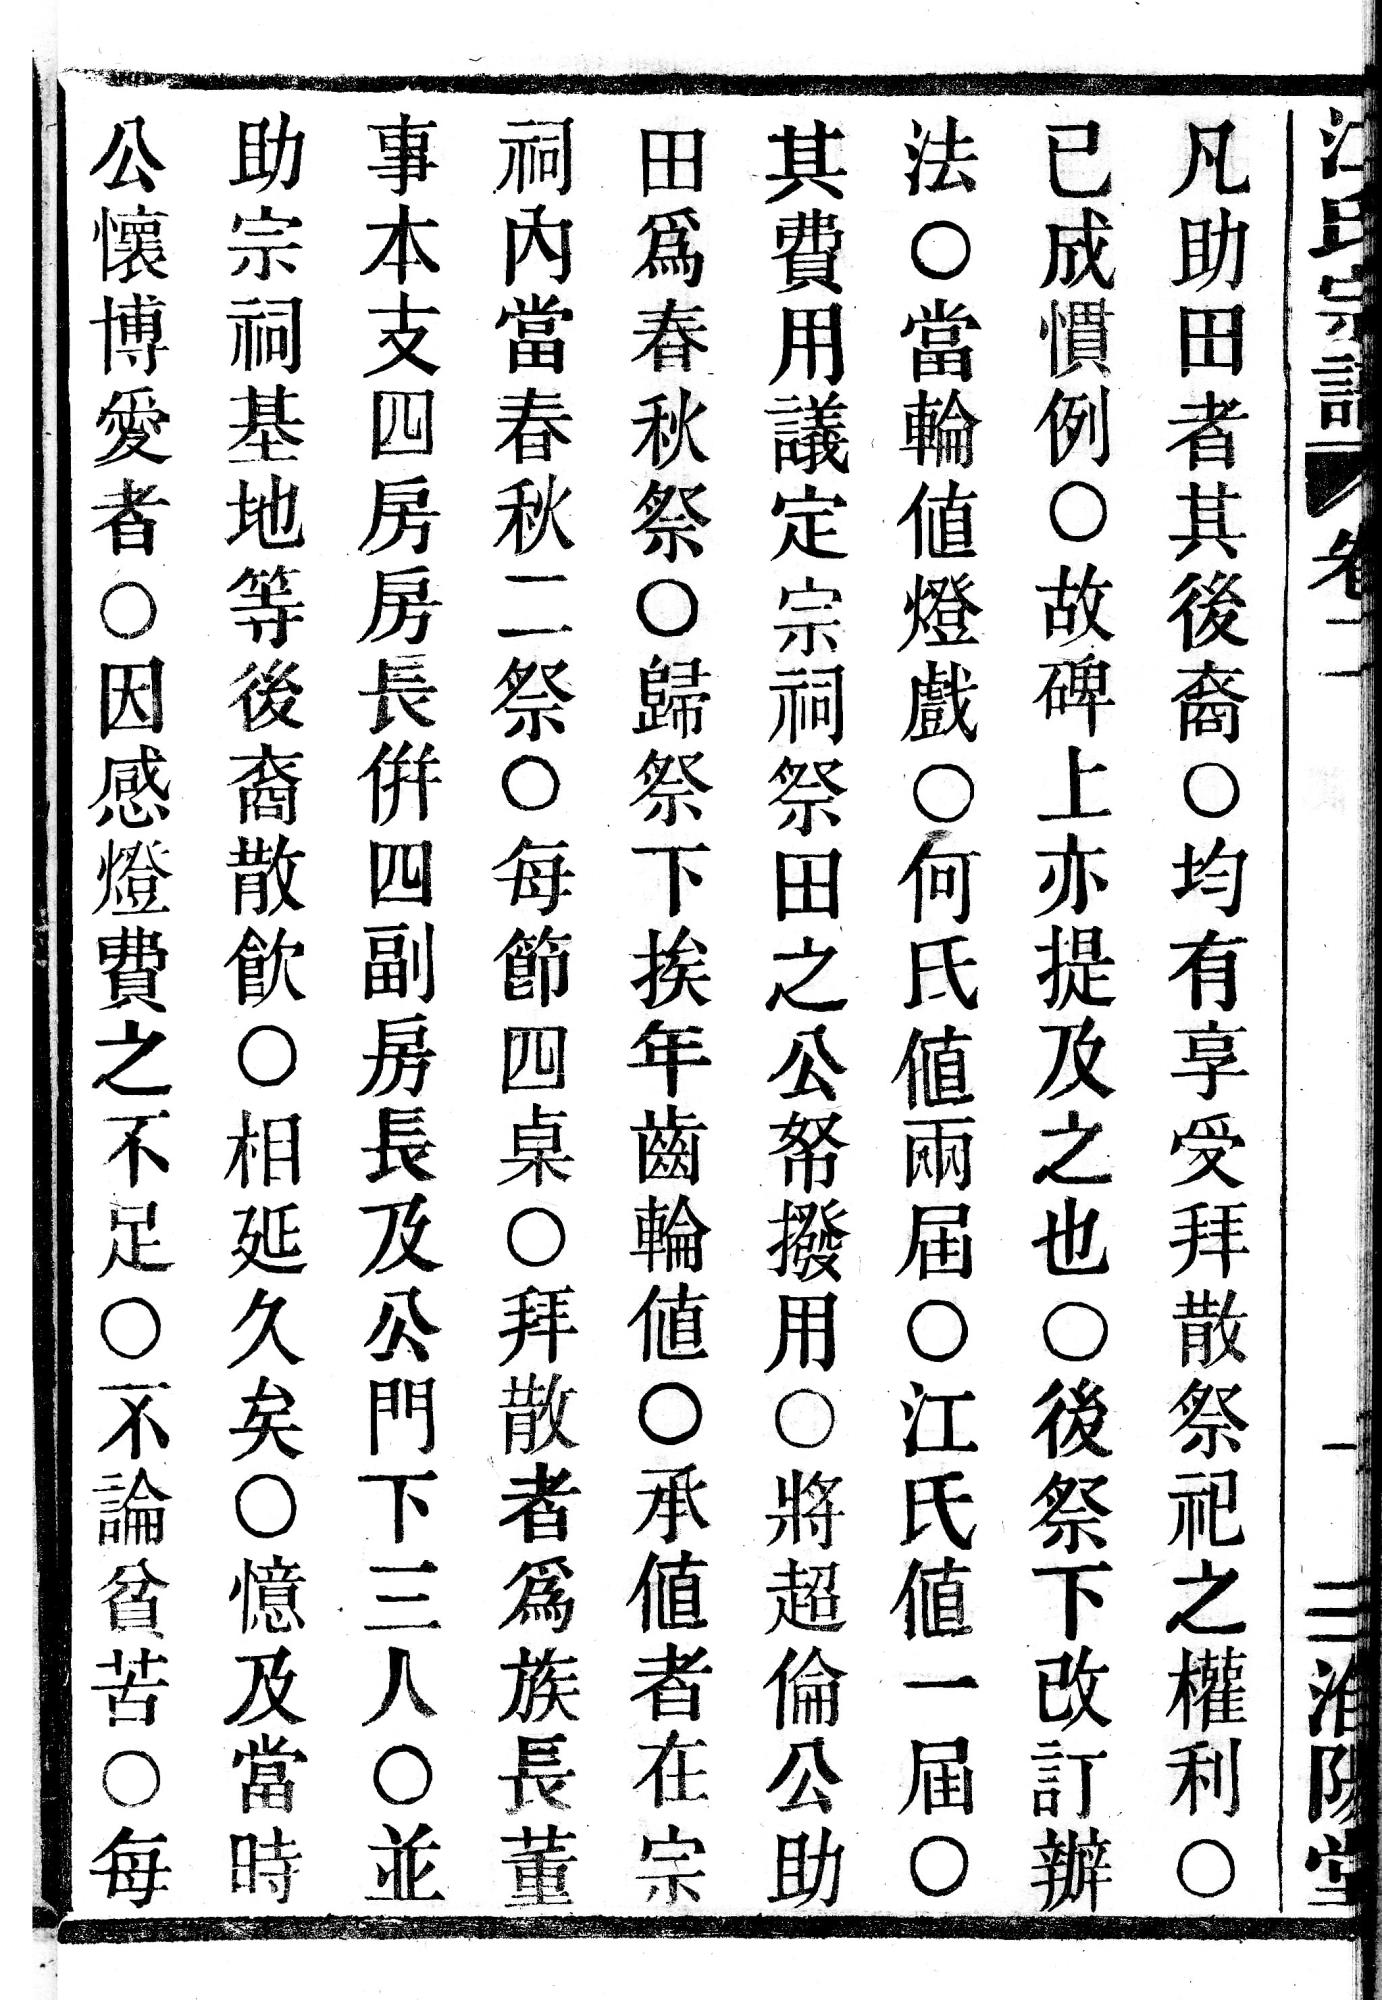 江氏宗譜 卷二 二 淮陽堂
凡助田者其後裔○均有享受拜散祭祀之權利○
已成慣例○故碑上亦提及之也○後祭下改訂辦
法○當輪値燈戲○何氏値兩屆○江氏値一屆○
其費用議定宗祠祭田之公帑撥用○將超倫公助
田爲春秋祭○歸祭下挨年齒輪値○承値者在宗
祠內當春秋二祭○每節四桌○拜散者爲族長董
事本支四房房長倂四副房長及公門下三人○並
助宗祠基地等後裔散飮○相延久矣○憶及當時
公懷博愛者○因感燈費之不足○不論貧苦○每